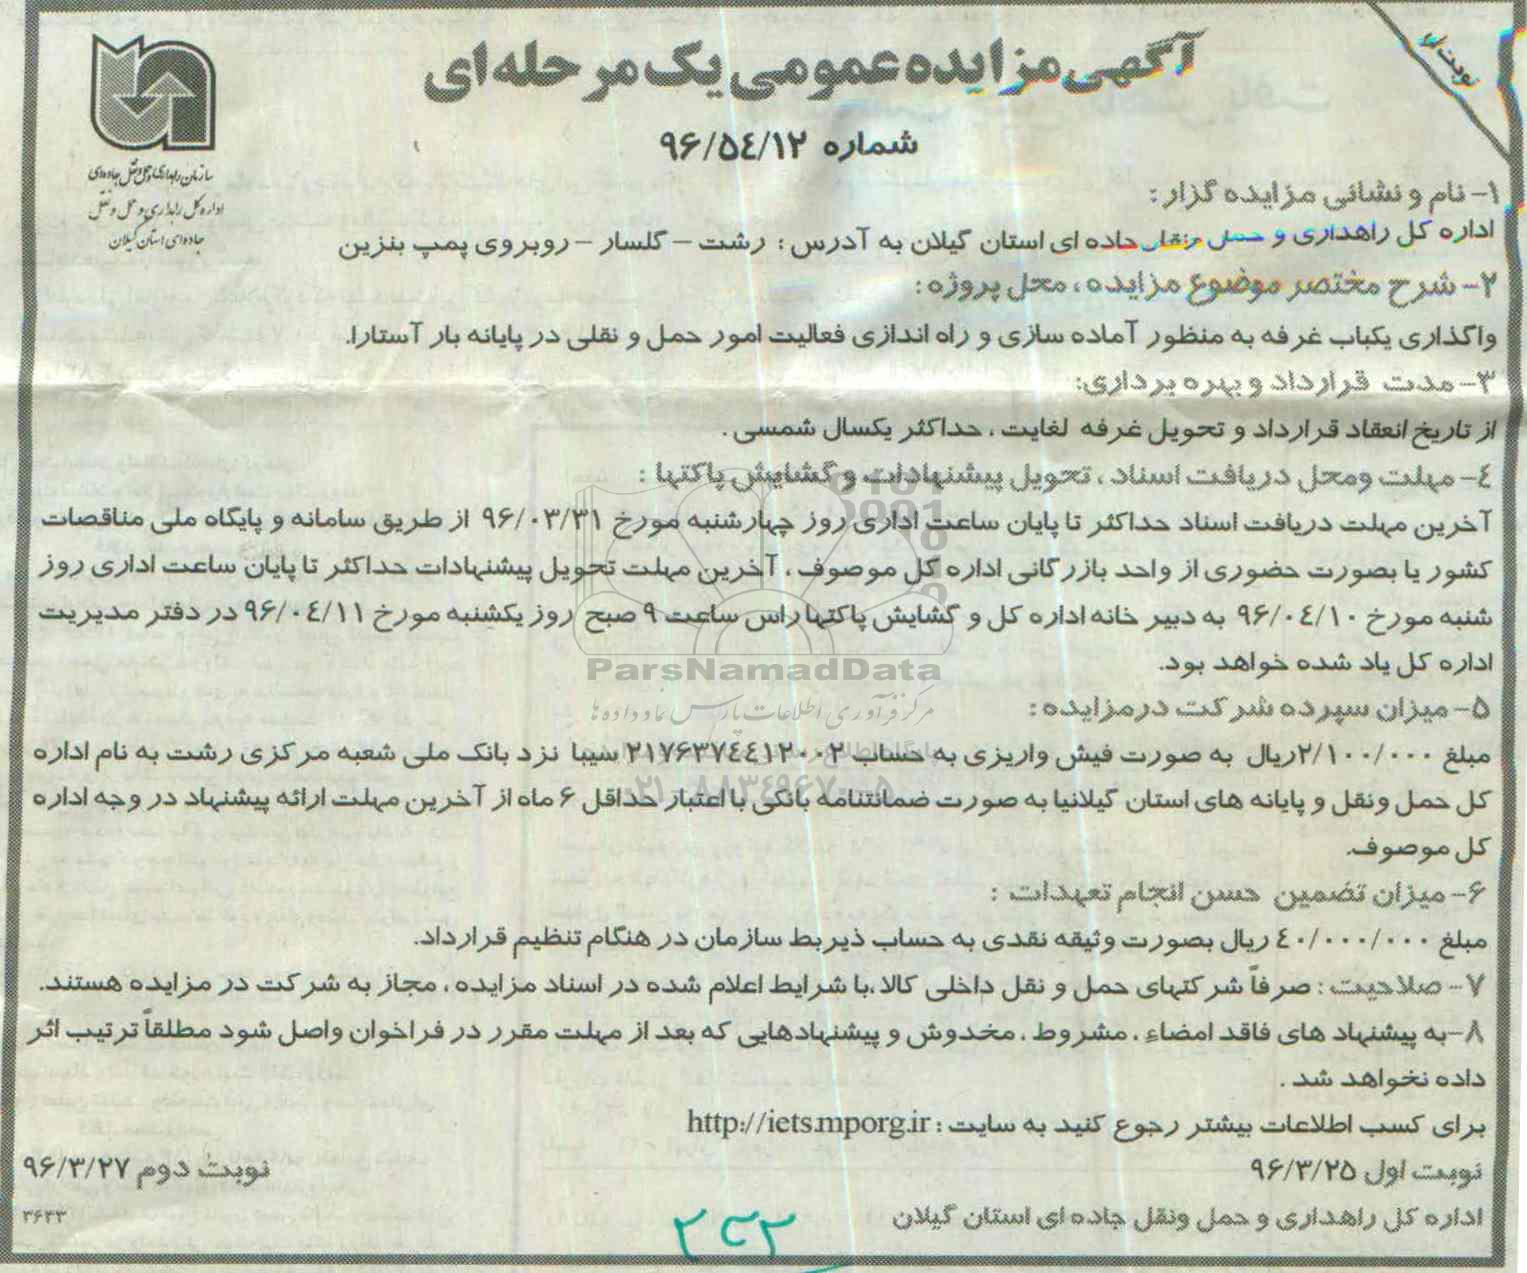 نوبت اول
آگهی مزایده عمومی یک مرحله ای
شماره ۹۶/۵٤/۱۲
سازمان راهداری و حمل و نقل جاده‌ای
اداره کل راهداری و حمل و نقل
جاده‌ای استان گیلان
۱- نام و نشانی مزایده گزار :
اداره کل راهداری و حمل ونقل جاده ای استان گیلان به آدرس : رشت – گلسار – روبروی پمپ بنزین
۲- شرح مختصر موضوع مزایده ، محل پروژه :
واگذاری یکباب غرفه به منظور آماده سازی و راه اندازی فعالیت امور حمل و نقلی در پایانه بار آستارا.
۳- مدت قرارداد و بهره برداری:
از تاریخ انعقاد قرارداد و تحویل غرفه لغایت ، حداکثر یکسال شمسی .
٤- مهلت ومحل دریافت اسناد ، تحویل پیشنهادات و گشایش پاکتها :
آخرین مهلت دریافت اسناد حداکثر تا پایان ساعت اداری روز چهارشنبه مورخ ۹۶/۰۳/۳۱ از طریق سامانه و پایگاه ملی مناقصات
کشور یا بصورت حضوری از واحد بازرگانی اداره کل موصوف ، آخرین مهلت تحویل پیشنهادات حداکثر تا پایان ساعت اداری روز
شنبه مورخ ۹۶/۰٤/۱۰ به دبیر خانه اداره کل و گشایش پاکتها راس ساعت ۹ صبح روز یکشنبه مورخ ۹۶/۰٤/۱۱ در دفتر مدیریت
اداره کل یاد شده خواهد بود.
ParsNamadData
مرکز فرآوری اطلاعات پارس نماد داده ها
۵- میزان سپرده شرکت درمزایده :
مبلغ ۲/۱۰۰/۰۰۰ریال به صورت فیش واریزی به حساب ۲۱۷۶۳۷٤٤۱۲۰۰۲ سیبا نزد بانک ملی شعبه مرکزی رشت به نام اداره
کل حمل ونقل و پایانه های استان گیلانیا به صورت ضمانتنامه بانکی با اعتبار حداقل ۶ ماه از آخرین مهلت ارائه پیشنهاد در وجه اداره
کل موصوف.
۰۲۱-۸۸۳٤۹۶۷۰-۵
۶- میزان تضمین حسن انجام تعهدات :
مبلغ ٤۰/۰۰۰/۰۰۰ ریال بصورت وثیقه نقدی به حساب ذیربط سازمان در هنگام تنظیم قرارداد.
۷- صلاحیت : صرفاً شرکتهای حمل و نقل داخلی کالا ،با شرایط اعلام شده در اسناد مزایده ، مجاز به شرکت در مزایده هستند.
۸-به پیشنهاد های فاقد امضاء ، مشروط ، مخدوش و پیشنهادهایی که بعد از مهلت مقرر در فراخوان واصل شود مطلقاً ترتیب اثر
داده نخواهد شد .
برای کسب اطلاعات بیشتر رجوع کنید به سایت : http://iets.mporg.ir
نوبت اول ۹۶/۳/۲۵
نوبت دوم ۹۶/۳/۲۷
اداره کل راهداری و حمل ونقل جاده ای استان گیلان
۳۶۴۳